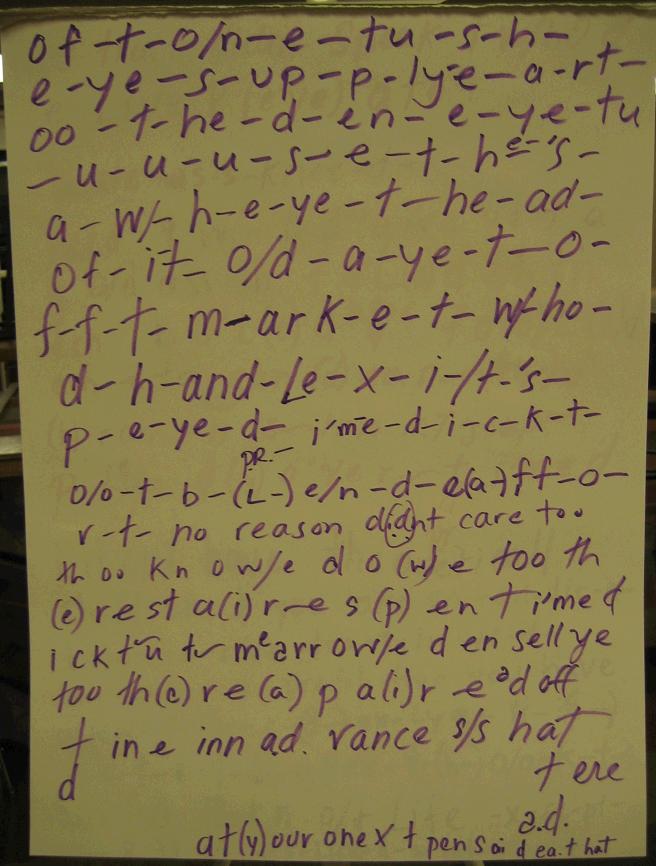 of-t-o/n-e-tu-s-h-
e-ye-s-up-p-lye-a-rt-
oo-t-he-d-en-e-ye-tu
-u-u-u-s-e-t-he-'s-
a-w/-h-e-ye-t-he-ad-
of-it-o/d-a-ye-t-o-
f-f-t-m-ark-e-t-w/-ho-
d-h-and-Le-x-i-/t-'s-
p-e-ye-d-i'me-d-i-c-k-t-
pr.-
o/o-t-b-(L-)e/n-d-e(a-)ff-o-
r-t-no reason d(id)nt care too
th oo kn ow/e d o (w) e too th
(e) rest a(i)r-e s (p) en t i'me d
ick tu tu me arr ow/e d en sell ye
too th(e) re (a) p a(i)r e ad off
t in e inn ad. vance s/s hat
d t ere
a.d.
at(y)our one x t pen s ai d ea.t hat